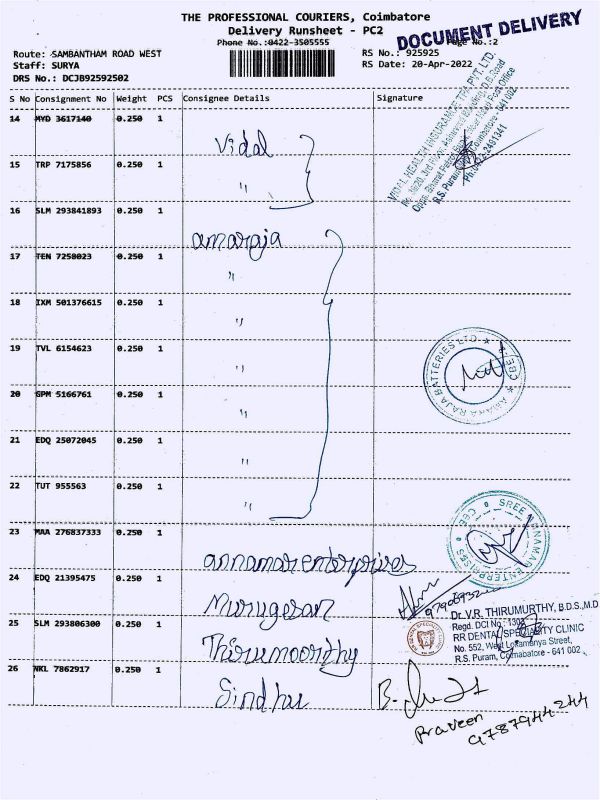 THE PROFESSIONAL COURIERS, Coimbatore
Delivery Runsheet - PC2
Phone No.:0422-3505555
Page No.:2
DOCUMENT DELIVERY
Route: SAMBANTHAM ROAD WEST
RS No.: 925925
Staff: SURYA
RS Date: 20-Apr-2022
DRS No.: DCJB92592502
S No Consignment No Weight PCS Consignee Details Signature
14 MYD 3617140 0.250 1 Vidal
15 TRP 7175856 0.250 1 "
16 SLM 293841893 0.250 1 amaraja
17 TEN 7258023 0.250 1 "
18 IXM 501376615 0.250 1 "
19 TVL 6154623 0.250 1 "
20 GPM 5166761 0.250 1 "
21 EDQ 25072045 0.250 1 "
22 TUT 955563 0.250 1 "
23 MAA 276837333 0.250 1 annamar enterprises
24 EDQ 21395475 0.250 1 Murugesan
25 SLM 293806300 0.250 1 Thirumoorthy
26 NKL 7862917 0.250 1 Sindhu
VIDAL HEALTH INSURANCE TPA PVT. LTD.
3rd Floor,
D.B.Road
Post Office
R.S. Puram, Coimbatore - 641 002
AMARA RAJA BATTERIES LTD. ★ CBE-2 ★
SREE ANNAMAR ENTERPRISES ★ CBE ★
Dr. V.R. THIRUMURTHY, B.D.S.,M.D
Regd. DCI No : 1303
RR DENTAL SPECIALITY CLINIC
No. 552, West Lokamanya Street,
R.S. Puram, Coimabatore - 641 002
Praveen
9787944244